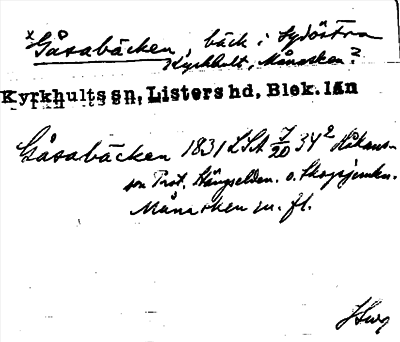 x Gåsabäcken, bäck i Sydöstra
Kyrkhult, Månasken?
Kyrkhults sn, Listers hd, Blek. län
Gåsabäcken 1831 LSA 7/20 34² Håkans-
son Prot. Hängselden. o. Skogsjenken.
Månasken m. fl.